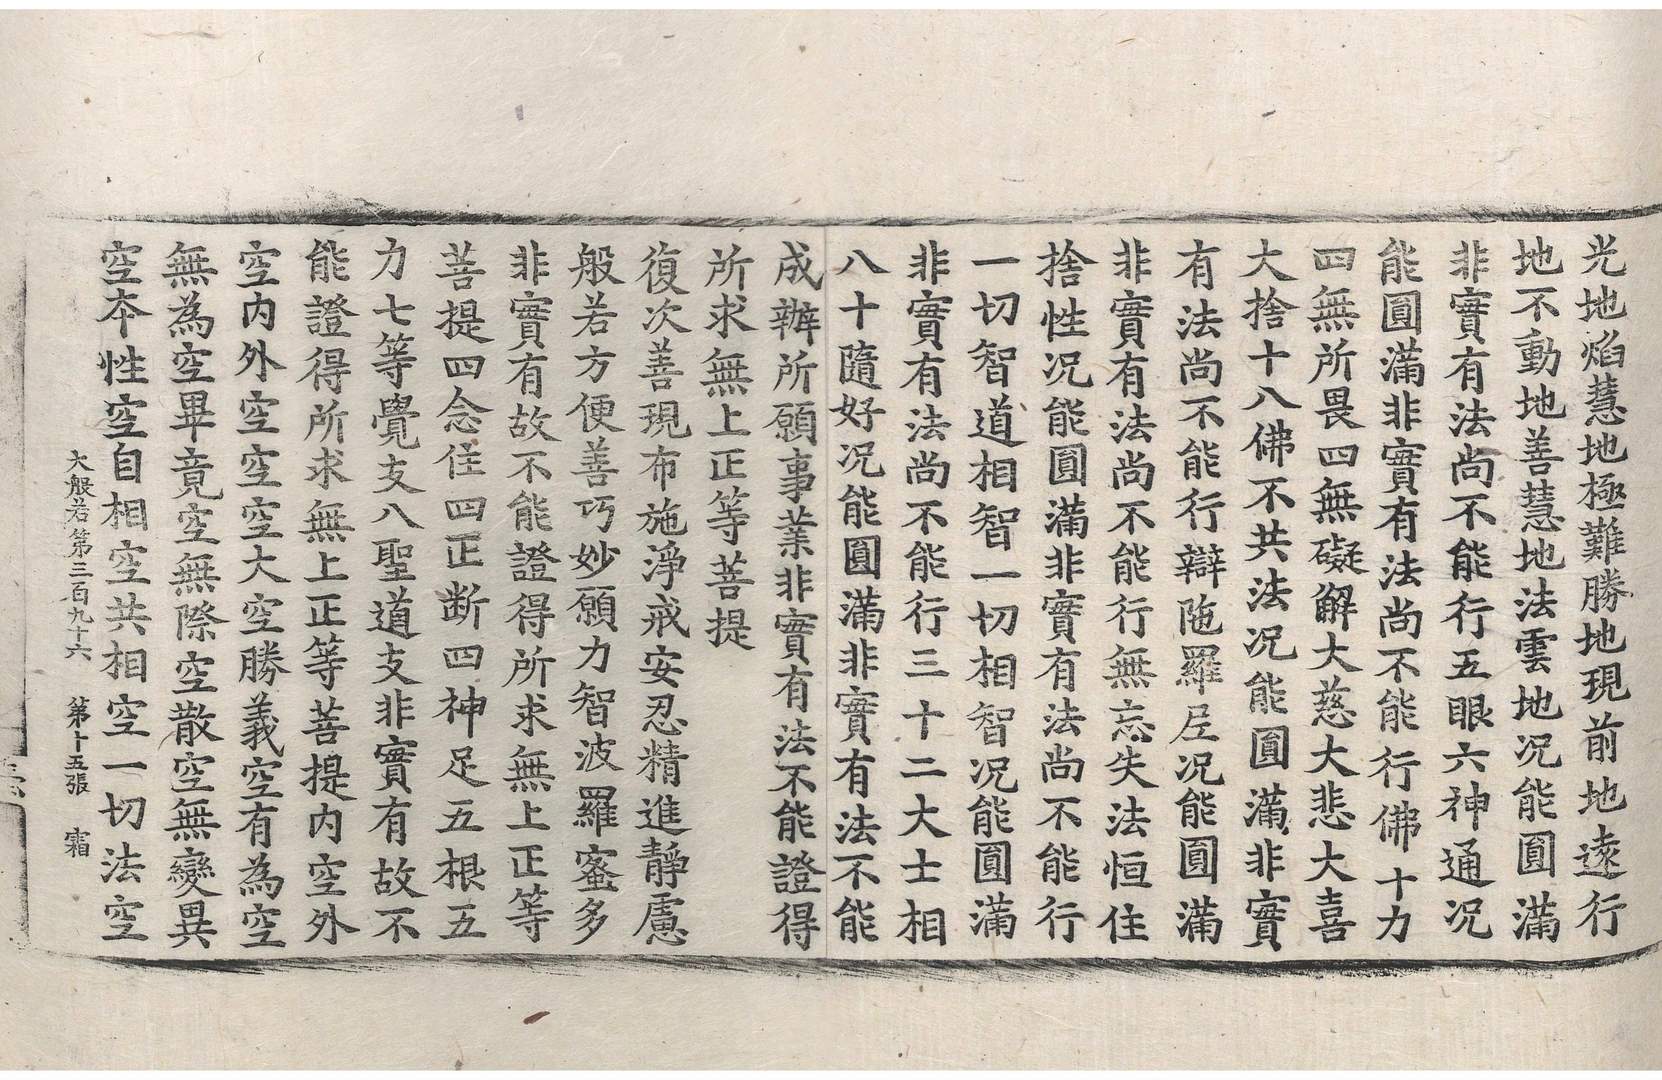 光地焰慧地極難勝地現前地遠行
地不動地善慧地法雲地况能圓滿
非實有法尚不能行五眼六神通况
能圓滿非實有法尚不能行佛十力
四無所畏四無礙解大慈大悲大喜
大捨十八佛不共法况能圓滿非實
有法尚不能行辯陁羅尼况能圓滿
非實有法尚不能行無忘失法恒住
捨性况能圓滿非實有法尚不能行
一切智道相智一切相智况能圓滿
非實有法尚不能行三十二大士相
八十隨好况能圓滿非實有法不能
成辦所願事業非實有法不能證得
所求無上正等菩提
復次善現布施淨戒安忍精進靜慮
般若方便善巧妙願力智波羅蜜多
非實有故不能證得所求無上正等
菩提四念住四正断四神足五根五
力七等覺支八聖道支非實有故不
能證得所求無上正等菩提内空外
空内外空空空大空勝義空有為空
無為空畢竟空無際空散空無變異
空本性空自相空共相空一切法空
大般若第三百九十六 第十五張 霜